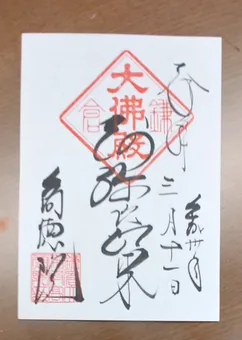 奉拝
平成卅年
三月十一日
鎌倉
大佛殿
弥陀如来
高徳院